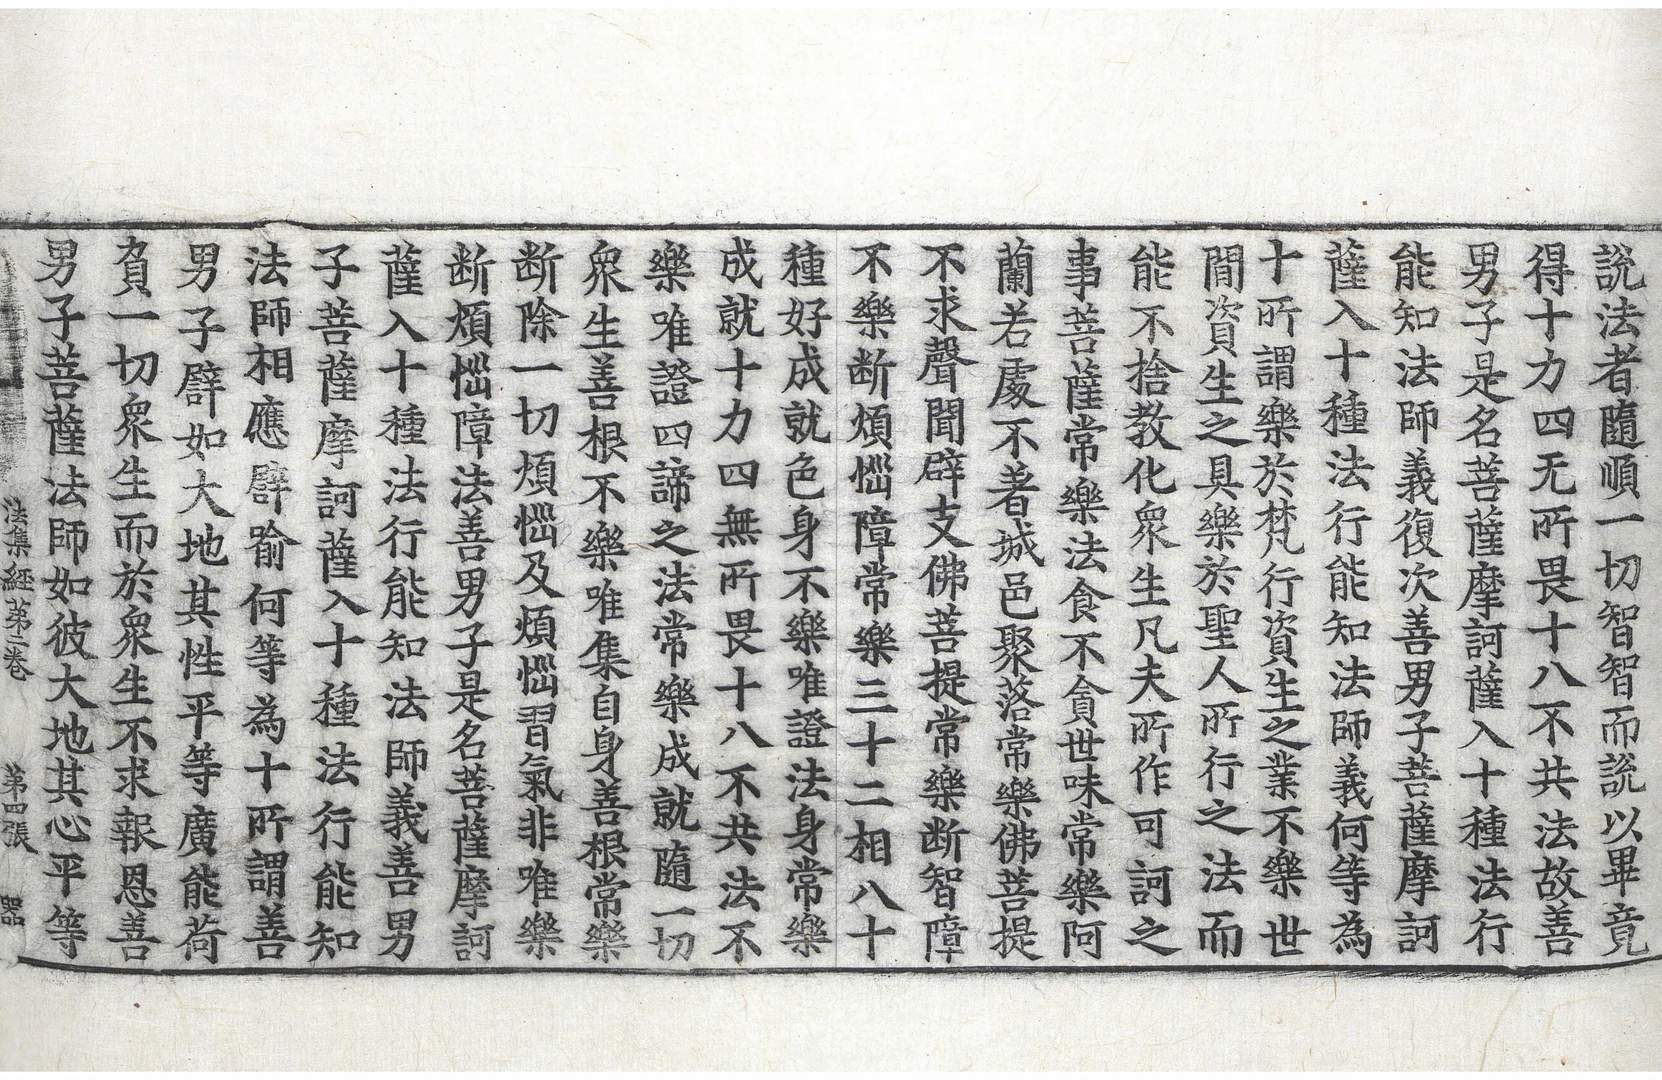 說法者隨順一切智智而說以畢竟
得十力四无所畏十八不共法故善
男子是名菩薩摩訶薩入十種法行
能知法師義復次善男子菩薩摩訶
薩入十種法行能知法師義何等為
十所謂樂於梵行資生之業不樂世
間資生之具樂於聖人所行之法而
能不捨教化衆生凡夫所作可訶之
事菩薩常樂法食不貪世味常樂阿
蘭若處不著城邑聚落常樂佛菩提
不求聲聞辟支佛菩提常樂断智障
不樂断煩惱障常樂三十二相八十
種好成就色身不樂唯證法身常樂
成就十力四無所畏十八不共法不
樂唯證四諦之法常樂成就隨一切
衆生善根不樂唯集自身善根常樂
断除一切煩惱及煩惱習氣非唯樂
断煩惱障法善男子是名菩薩摩訶
薩入十種法行能知法師義善男
子菩薩摩訶薩入十種法行能知
法師相應譬喻何等為十所謂善
男子譬如大地其性平等廣能荷
負一切衆生而於衆生不求報恩善
男子菩薩法師如彼大地其心平等
法集經第三卷 第四張 器